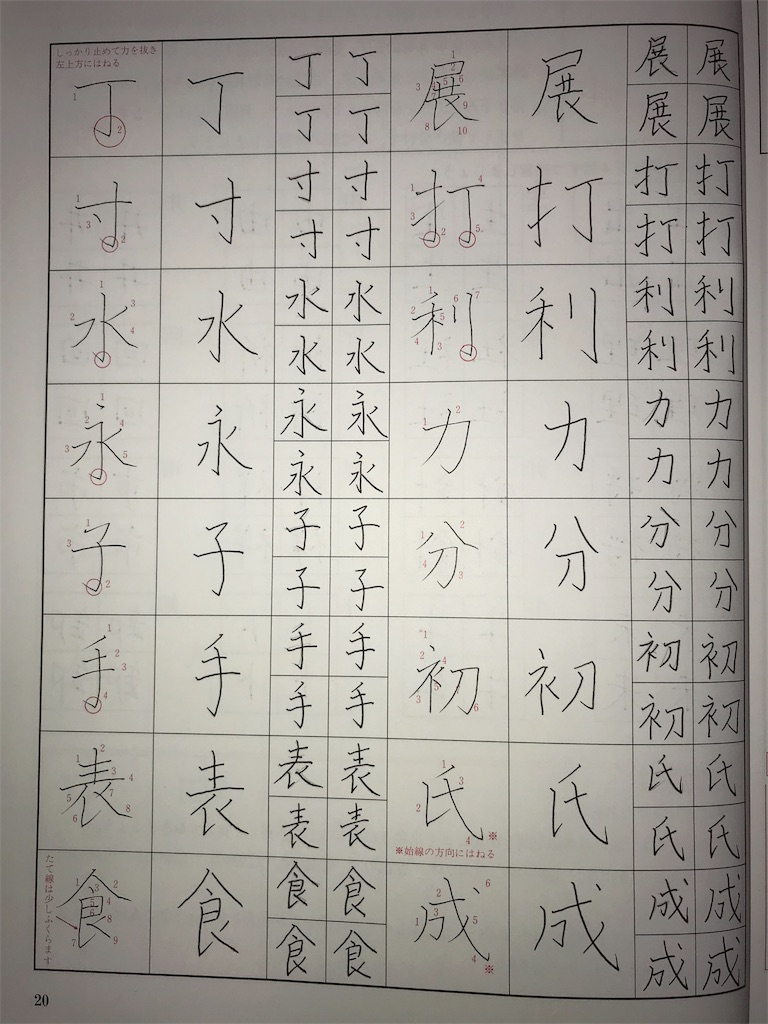 しっかり止めて力を抜き
左上方にはねる
丁 丁 丁 丁 展 展 展 展
丁 丁 展 展
寸 寸 寸 寸 打 打 打 打
寸 寸 打 打
水 水 水 水 利 利 利 利
水 水 利 利
永 永 永 永 力 力 力 力
永 永 力 力
子 子 子 子 分 分 分 分
子 子 分 分
手 手 手 手 初 初 初 初
手 手 初 初
表 表 表 表 氏 氏 氏 氏
表 表 氏 氏
※始線の方向にはねる
たて線は少しふくらます
食 食 食 食 成 成 成 成
食 食 成 成
※
20